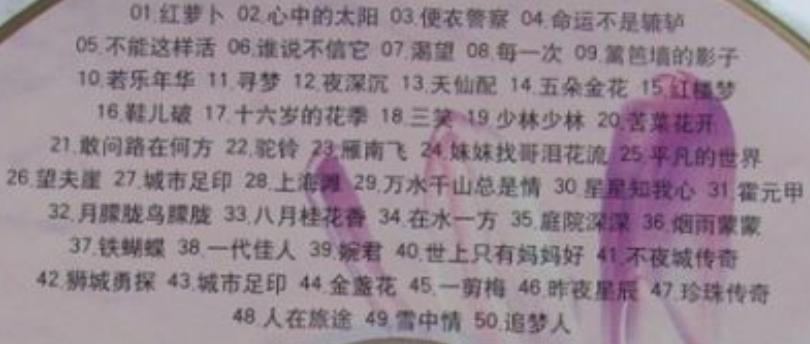 01.红萝卜 02.心中的太阳 03.便衣警察 04.命运不是辘轳
05.不能这样活 06.谁说不信它 07.渴望 08.每一次 09.篱笆墙的影子
10.若乐年华 11.寻梦 12.夜深沉 13.天仙配 14.五朵金花 15.红楼梦
16.鞋儿破 17.十六岁的花季 18.三笑 19.少林少林 20.苦菜花开
21.敢问路在何方 22.驼铃 23.雁南飞 24.妹妹找哥泪花流 25.平凡的世界
26.望夫崖 27.城市足印 28.上海滩 29.万水千山总是情 30.星星知我心 31.霍元甲
32.月朦胧鸟朦胧 33.八月桂花香 34.在水一方 35.庭院深深 36.烟雨蒙蒙
37.铁蝴蝶 38.一代佳人 39.婉君 40.世上只有妈妈好 41.不夜城传奇
42.狮城勇探 43.城市足印 44.金盏花 45.一剪梅 46.昨夜星辰 47.珍珠传奇
48.人在旅途 49.雪中情 50.追梦人